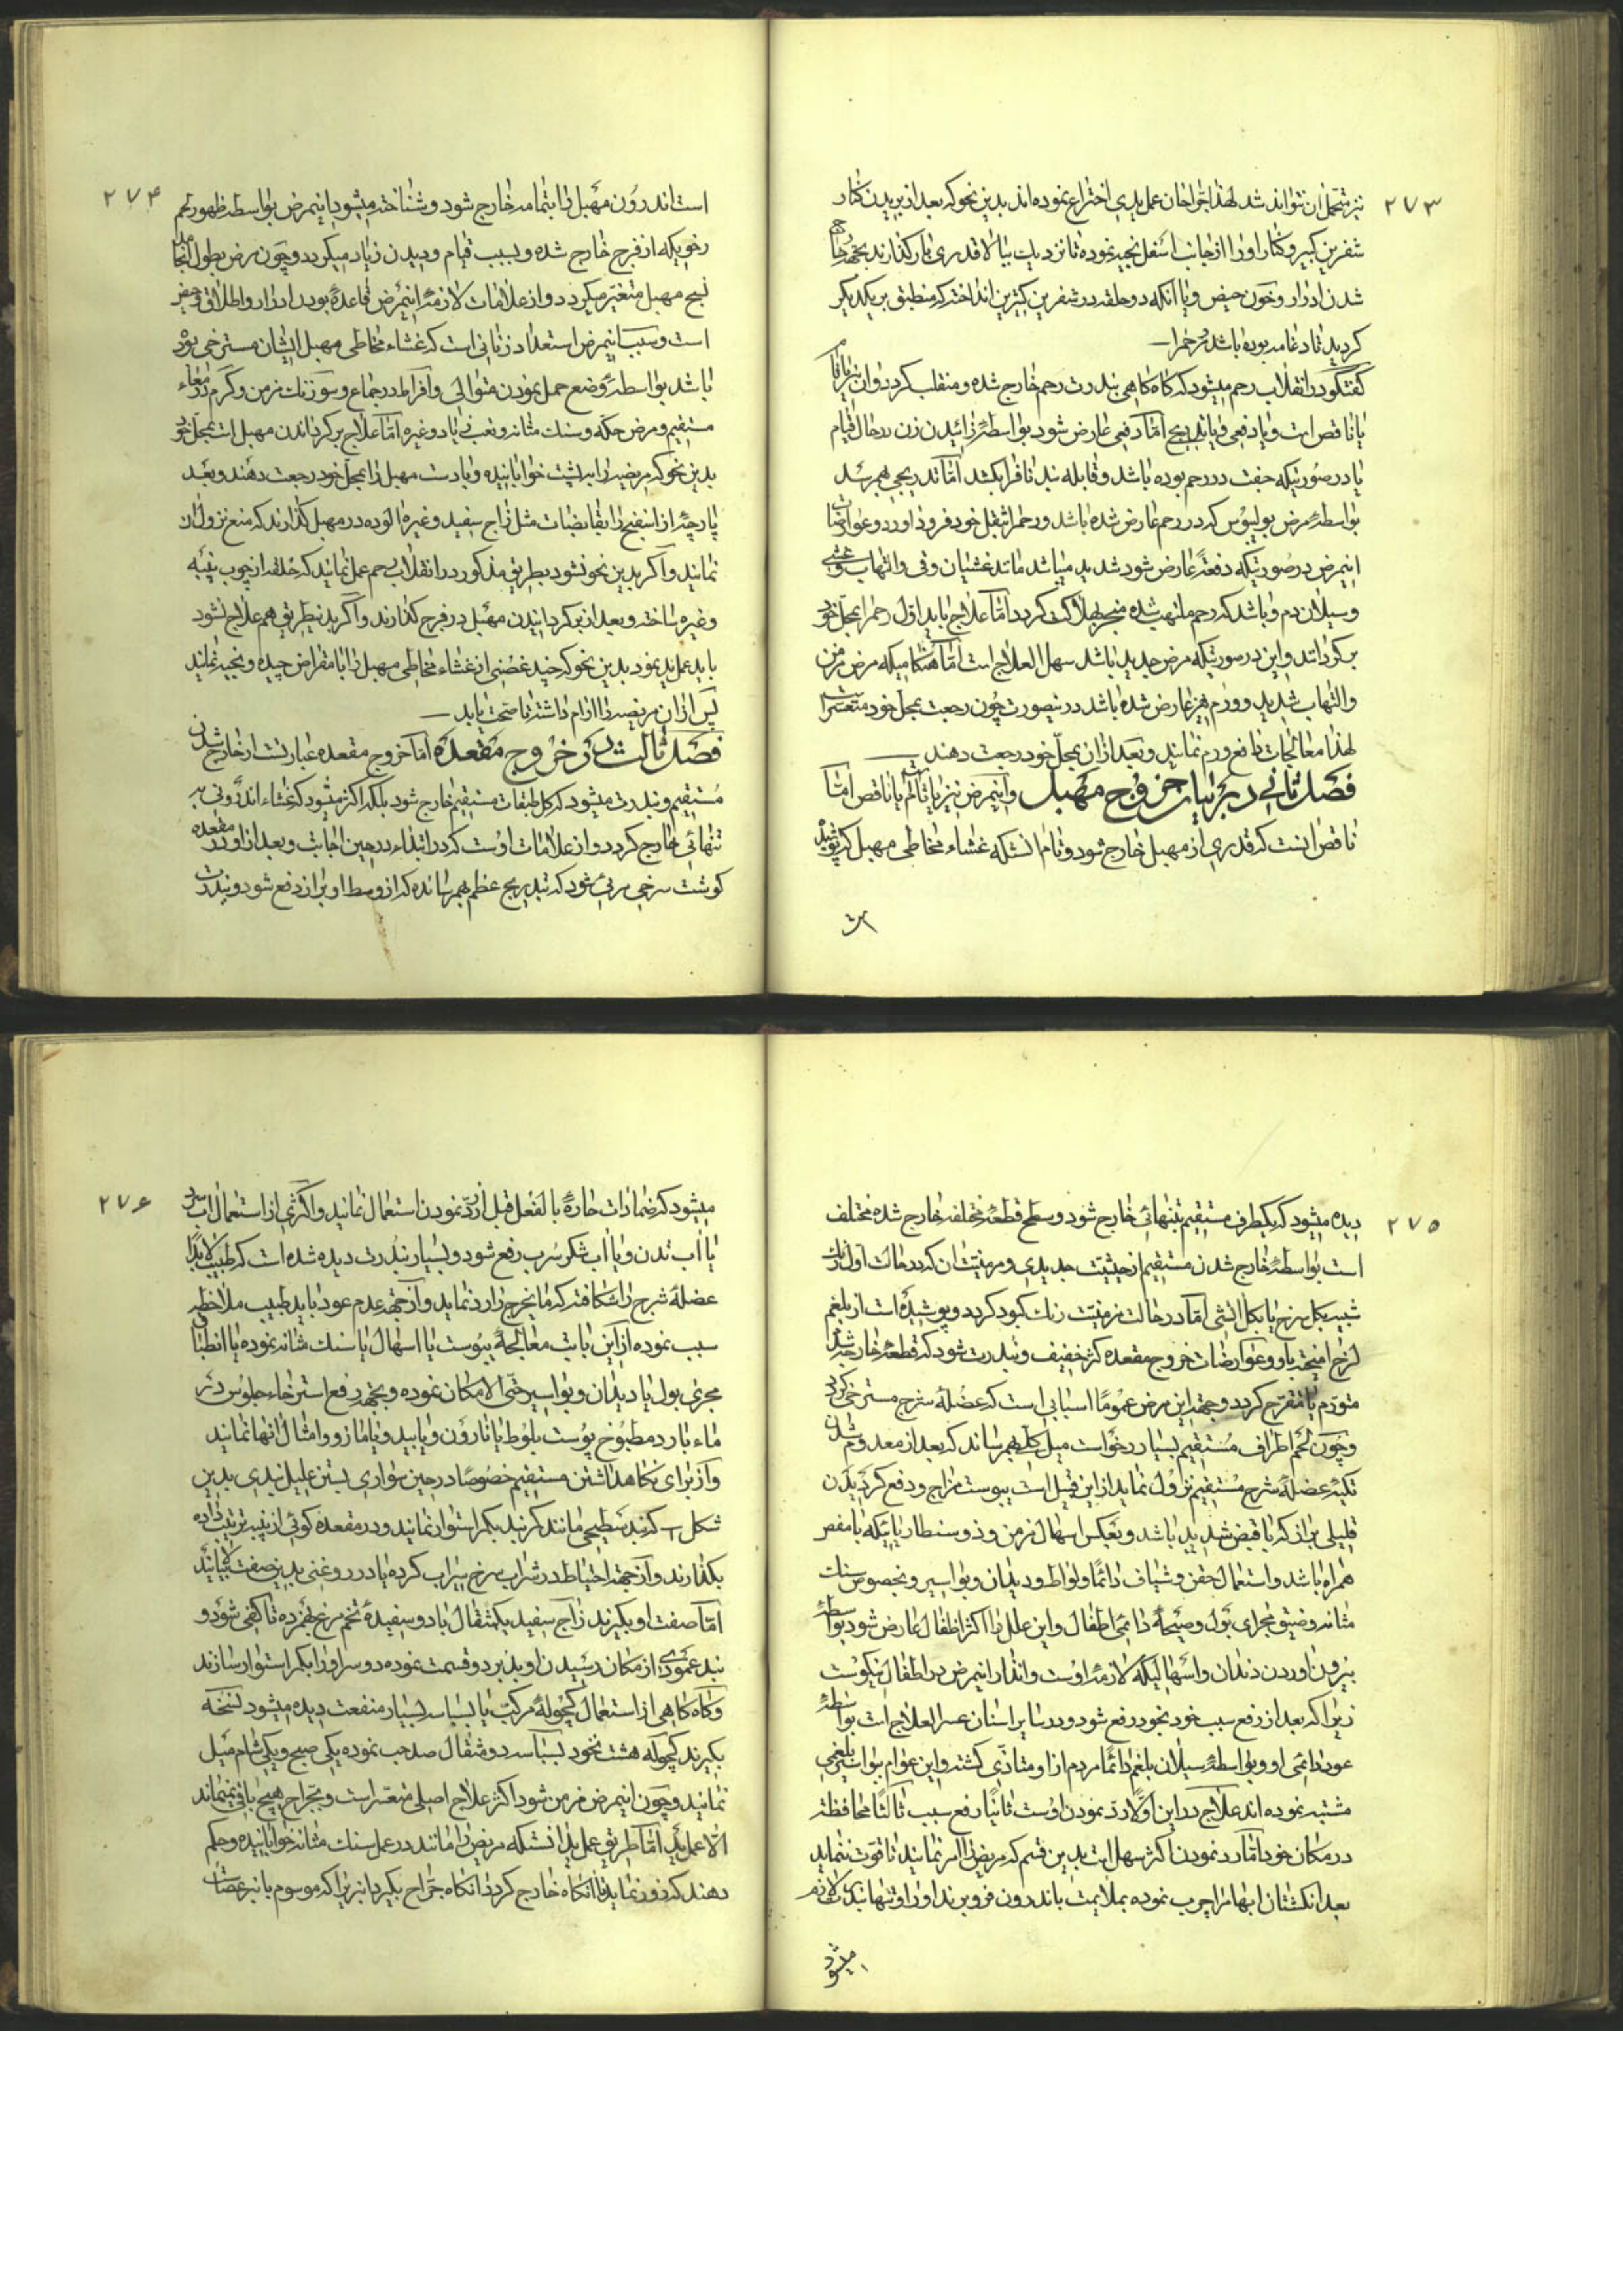 ۲۷۳
نیز متحمل آن نتواند شد لهذا جراحان عمل یدی اختراع نموده اند بدین نحو که بعد از بریدن کنار
شفرین کبیر و کنار او را از جانب اسفل بخیه نموده تا نزدیک ببالا قدری باز گذارند بجهة خارج
شدن ادرار و خون حیض و یا آنکه دو حلقه در شفرین کبیرین انداخته که منطبق بر یکدیگر
گردید تا دعامه بوده باشد مر رحم را
گفتگو در انقلاب رحم میشود که گاه گاهی بندرت رحم خارج شده و منقلب گردد و آن نیز یا تام
یا ناقص است و یا دفعی و یا بتدریج اما دفعی عارض شود بواسطهٔ زائیدن زن در حال قیام
یا در صورتیکه جفت در رحم بوده باشد و قابله بند ناف را بکشد اما تدریجی بهم رسد
بواسطهٔ مرض بولیپوس که در رحم عارض شده باشد و رحم را بثقل خود فرود آورد و عوارضات
اینمرض در صورتیکه دفعةً عارض شود شدید میباشد مانند غشیان و قی و التهاب و غشی
و سیلان دم و باشد که رحم ملتهب شده منجر بهلاکت گردد اما علاج باید اول رحم را بمحل خود
برگردانند و این در صورتیکه مرض جدید باشد سهل العلاج است اما هنگامیکه مرض مزمن
و التهاب شدید و ورم هم عارض شده باشد در نیصورت چون رجعت بمحل خود متعسر است
لهذا معالجات دافع ورم نمایند و بعد از آن بمحل خود رجعت دهند
فصل ثانی در بیان خروج مهبل و اینمرض نیز یا تام یا ناقص اما
ناقص آنست که قدری از مهبل خارج شود و تام آنستکه غشاء مخاطی مهبل که پوشیده
۲۷۴
است اندرون مهبل را بتمامه خارج شود و شناخته میشود اینمرض بواسطه ظهور لحم
رخویکه از فرج خارج شده و بسبب قیام و دویدن زیاد میگردد و چون مرض بطول انجامد
نسج مهبل متغیر میگردد و از علامات لازمهٔ اینمرض قاعدهٔ بودن ادرار و اطلاق
است و سبب اینمرض استعداد زنانی است که غشاء مخاطی مهبل ایشان مسترخی بوده
باشد بواسطهٔ وضع حمل نمودن متوالی و افراط در جماع و سوزنک مزمن و کرم امعاء
مستقیم و مرض حکه و سنک مثانه و تعب زیاد و غیره اما علاج برگرداندن مهبل است بمحل خود
بدین نحو که مریضه را به پشت خوابانیده و با دست مهبل را بمحل خود رجعت دهند و بعد
پارچهٔ از اسفنج را بقابضات مثل زاج سفید و غیره آلوده در مهبل گذارند که منع نزول آن
نمایند و اگر بدین نحو نشود بطریق مذکور در انقلاب رحم عمل نمایند که حلقه از چوب پنبه
و غیره ساخته و بعد از برگردانیدن مهبل در فرج گذارند و اگر بدینطریق هم علاج نشود
باید عمل ید نمود بدین نحو که چند غضنی از غشاء مخاطی مهبل را با مقراض چیده و بخیه نمایند
پس از آن مریضه را آرام داشته تا صحت یابد
فصل ثالث در خروج مقعده اما خروج مقعده عبارتست از خارج شدن
مستقیم و بندرت میشود که کل طبقات مستقیم خارج شود بلکه اکثر میشود که غشاء اندرونی به
تنهائی خارج گردد و از علامات اوست که در ابتداء در حین اجابت و بعد از او در مقعده
گوشت سرخی مرئی شود که بتدریج عظم بهم رسانده که از وسط او براز دفع شود و بندرت
۲۷۵
دیده میشود که یکطرف مستقیم بتنهائی خارج شود و سطح قطعهٔ مختلفه خارج شده مختلف
است بواسطهٔ خارج شدن مستقیم از حیثیت جدیدی و مزمنیت آن که در حالت اول رنک
شبیه بگل سرخ یا بگل آتشی اما در حالت مزمنیت رنک کبود گردد و پوشیده است از بلغم
لزج آمیخته باو و عوارضات خروج مقعده اکثر خفیف و بندرت شود که قطعهٔ خارج شده
متورم یا متقرح گردد و جهة این مرض عموما اسبابی است که عضلهٔ شرج مسترخی گردد
و چون لحم اطراف مستقیم بسیار رخو است میل کلی بهم رساند که بعد از معدوم شدن
تکیهٔ عضلهٔ شرج مستقیم نزول نماید از این قبیل است یبوست مزاج و دفع کردیدن
قلیلی براز که با قبض شدید باشد و بعکس اسهال مزمن و ذوسنطاریائیکه با مغص
همراه باشد و استعمال حقن و شیاف دائما و لواط و دیدان و بواسیر و بخصوص سنک
مثانه و ضیق مجرای بول و صیحهٔ دائمی اطفال و این علل را اکثر اطفال عارض شود بواسطهٔ
بیرون آوردن دندان و اسهالیکه لازمهٔ اوست و انذار اینمرض در اطفال نیکوست
زیرا که بعد از رفع سبب خود بخود رفع شود و در سایر اسنان عسر العلاج است بواسطهٔ
عود دائمی او و بواسطهٔ سیلان بلغم دائما مردم از او متاذی گشته و این عوام بواسیر بلغمی
مشتبه نموده اند علاج در این اولا رد نمودن اوست ثانیا رفع سبب ثالثا محافظة
در مکان خود اما رد نمودن اکثر سهل است بدین قسم که مریض را امر نمایند تا قوت ننماید
بعد انگشتان ابهام را چرب نموده بملایمت باندرون فرو برند او را و تنها بندرت لازم
میشود
۲۷۶
میشود که ضمادات حارهٔ بالفعل قبل از رد نمودن استعمال نمایند و اکثری از استعمال آب سرد
یا آب تدن و یا آب شکر سرب رفع شود و بسیار بندرت دیده شده است که طبیب لابدا
عضلهٔ شرج را شکافته که ما یخرج را رد نماید و از جهة عدم عود باید طبیب ملاحظهٔ
سبب نموده از این بابت معالجهٔ یبوست یا اسهال یا سنک مثانه نموده یا انطباق
مجری بول یا دیدان و بواسیر حتی الامکان نموده و بجهة رفع استرخاء جلوس در
ماء بارد مطبوخ پوست بلوط یا نارون و یا بید و یا مازو و امثال آنها نمایند
و از برای نگاهداشتن مستقیم خصوصا در حین سواری بستن علیل بندی بدین
شکل کمربند سطیحی مانند کمربند بکمر استوار نمایند و در مقعده گوئی از پنبه ترتیب داده
بگذارند و از جهة احتیاط در شراب سرخ سیراب کرده یا در روغنی بدین صفت
اما صفت او بگیرند زاج سفید یکمثقال با دو سفیدهٔ تخم مرغ بهم زده تا کفی شود و
بند عمودی از مکان رسیدن او بذیر دو قسمت نموده دو سر او را بکمر استوار سازند
و گاه گاهی از استعمال کچولهٔ مرکب با بسباسه بسیار منفعت دیده میشود نسخه
بگیرند کچوله هشت نخود بسباسه دو مثقال صد حب نموده یکی صبح و یکی شام میل
نمایند و چون اینمرض مزمن شود اکثر علاج اصلی متعسر است و بجراح هیچ باقی نمیماند
الا عمل ید اما طریق عمل ید آنستکه مریض را مانند در عمل سنک مثانه خوابانیده و حکم
دهند که زور نماید تا آنگاه خارج گردد آنگاه جراح بگیرد انبریرا که موسوم بانبر عضلات